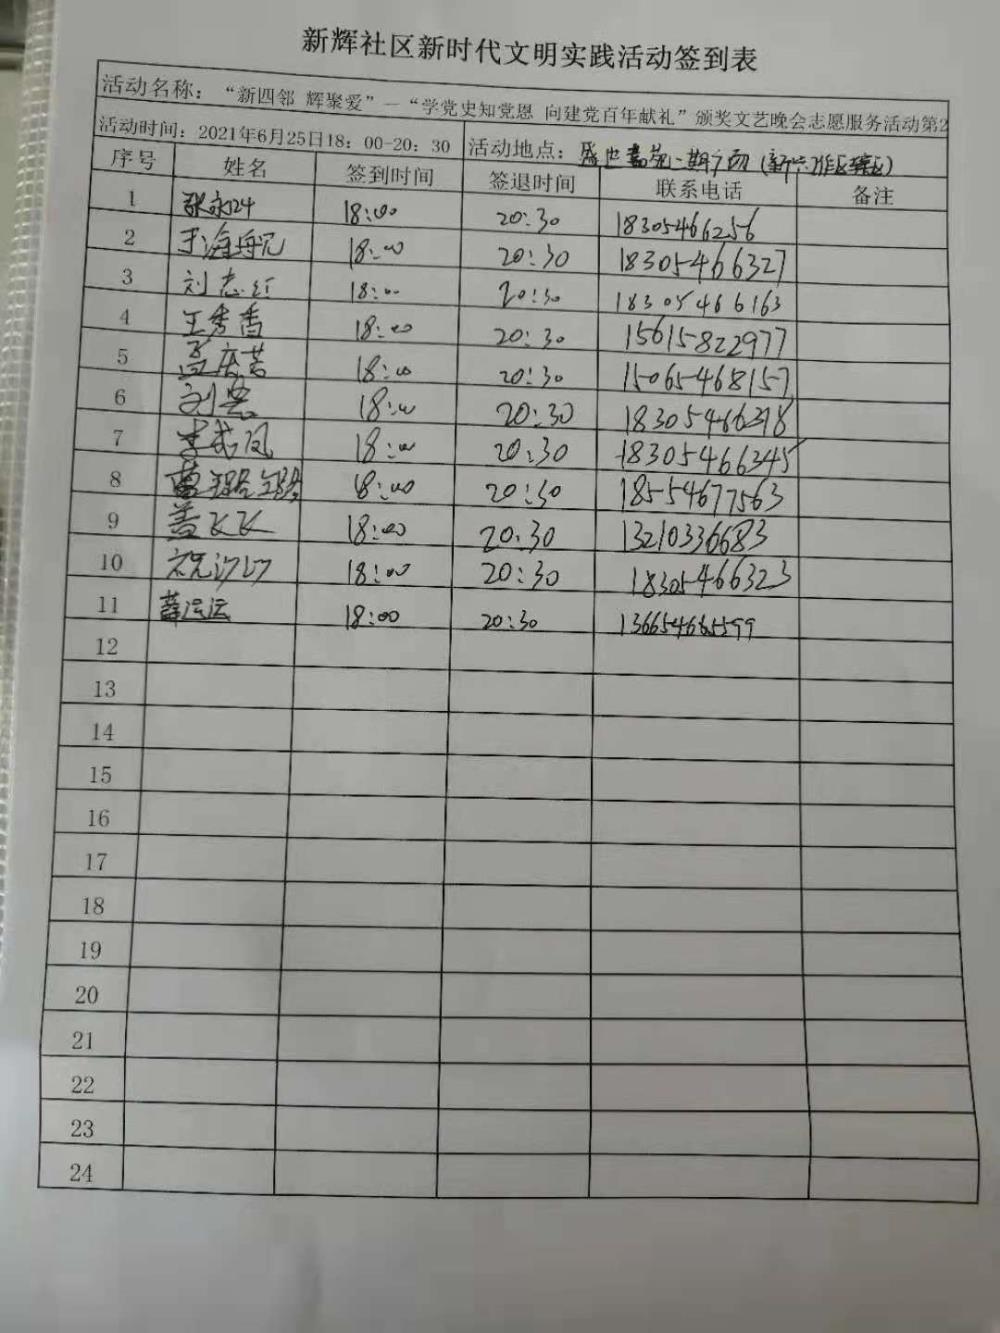 新辉社区新时代文明实践活动签到表
活动名称：“新四邻 辉聚爱”—“学党史知党恩 向建党百年献礼”颁奖文艺晚会志愿服务活动第2
活动时间：2021年6月25日18：00-20：30 活动地点：盛世嘉苑二期广场
序号 姓名 签到时间 签退时间 联系电话 备注
1 18:00 20:30 18305466256
2 18:00 20:30 18305466327
3 刘志红 18:00 20:30 18305466163
4 王秀香 18:00 20:30 15615822977
5 孟庆苔 18:00 20:30 15065468157
6 刘宏 18:00 20:30 18305466318
7 18:00 20:30 18305466345
8 18:00 20:30 18554677563
9 盖飞飞 18:00 20:30 13210336683
10 18:00 20:30 18305466323
11 薛运运 18:00 20:30
12
13
14
15
16
17
18
19
20
21
22
23
24